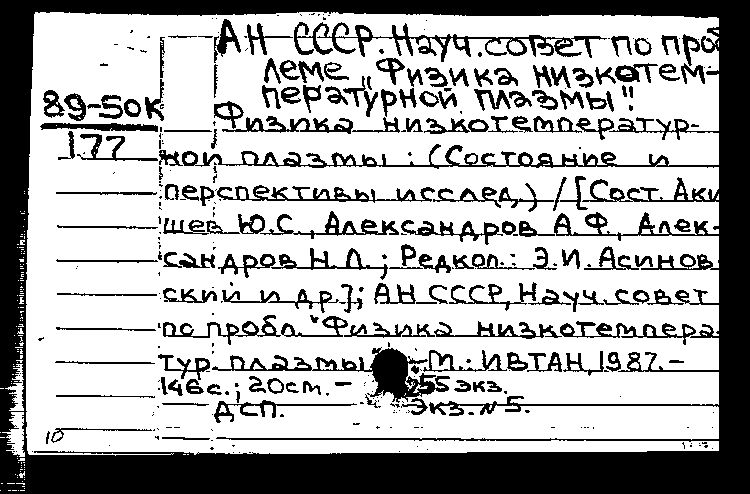 АН СССР. Науч. совет по проб
леме „Физика низкотем-
пературной плазмы".
89-50К
177
Физика низкотемператур-
ной плазмы : (Состояние и
перспективы исслед.) / [Сост. Аки
шев Ю.С., Александров А.Ф., Алек-
сандров Н.Л.; Редкол.: Э.И. Асинов
ский и др.]; АН СССР, Науч. совет
по пробл. "Физика низкотемпера-
тур. плазмы" — М.: ИВТАН, 1987. —
146 с.; 20 см. — 255 экз.
ДСП. Экз. N 5.
10